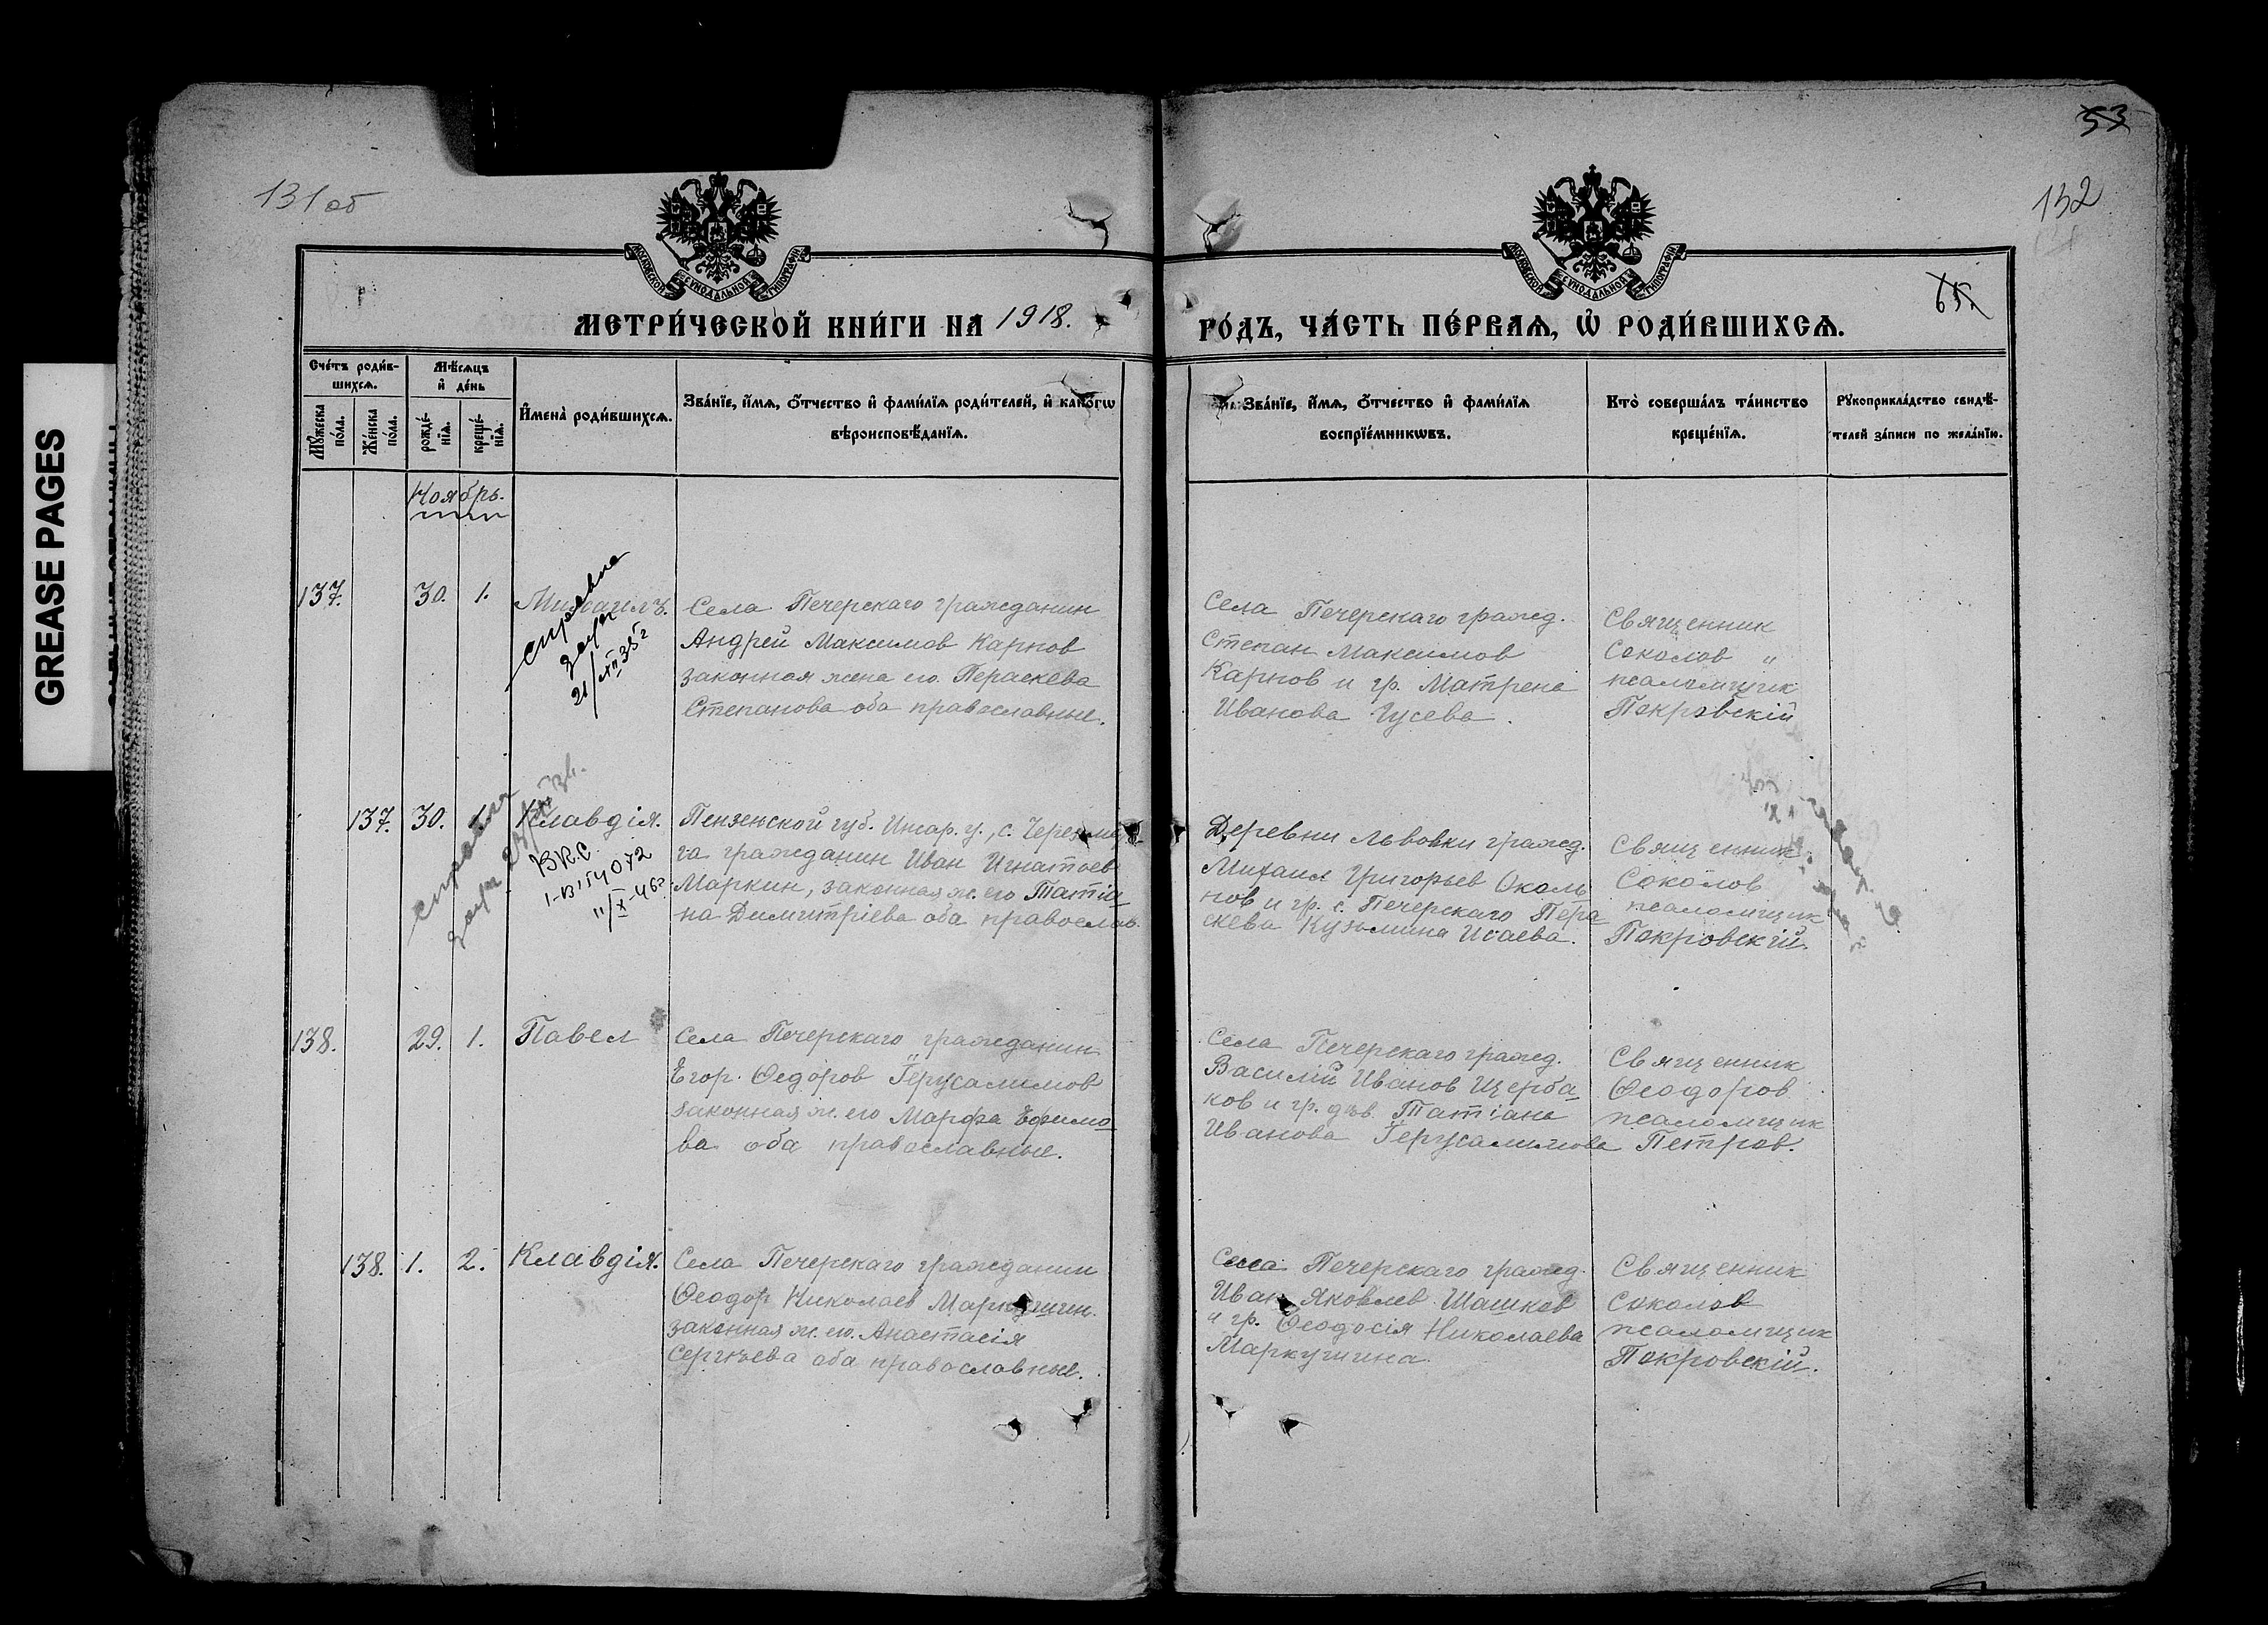 GREASE PAGES
131об
53
132
МОСКОВСКОЙ СѴНОДАЛЬНОЙ ТИПОГРАФІИ
МОСКОВСКОЙ СѴНОДАЛЬНОЙ ТИПОГРАФІИ
МЕТРИ́ЧЕСКОЙ КНИ́ГИ НА 1918.
РО́ДЪ, ЧА́СТЬ ПЕ́РВАѦ, Ѡ҆ РОДИ́ВШИХСѦ.
Сче́тъ роди́в-
шихсѧ.
Мꙋ́жеска
по́ла.
Же́нска
по́ла.
Мѣ́сѧцъ
и҆ де́нь
рожде́-
нїѧ.
креще́-
нїѧ.
И҆мена̀ роди́вшихсѧ.
Зва́нїе, и҆́мѧ, ѻ҆́тчество и҆ фами́лїѧ роди́телей, и҆ како́гѡ
вѣроисповѣ́данїѧ.
Зва́нїе, и҆́мѧ, ѻ҆́тчество и҆ фами́лїѧ
воспрїе́мникѡвъ.
Кто̀ соверша́лъ та́инство
креще́нїѧ.
Рꙋкоприкла́дство свидѣ́-
телей за́писи по жела́нїю.
Ноябрь.
137.
30. 1.
Михаилъ.
справка
21/XII 35г
Села Печерскаго гражданин
Андрей Максимов Карпов
законная жена его Пераскева
Степанова оба православные.
Села Печерскаго гражд.
Степан Максимов
Карпов и гр. Матрена
Иванова Гусева.
Священник
Соколов "
псаломщик
Покровскій
137. 30. 1.
Клавдія.
справка
ВКС
11/X-46г.
Пензенской губ. Инсар. у., с.
га гражданин Иван Игнатьев
Маркин, законная ж. его Татіа
на Димитріева оба православ.
Деревни Львовки гражд.
Михаил Григорьев Околь
нов и гр. с. Печерскаго Пера
скева Кузьмина Исаева.
Священник
Соколов
псаломщик
Покровскій.
138.
29. 1.
Павел
Села Печерскаго гражданин
Егор Ѳедоров Іерусалимов
законная ж. его Марфа Ефимо
ва оба православные.
Села Печерскаго гражд.
Василій Иванов Щерба
ков и гр. дѣв. Татіана
Иванова Іерусалимова
Священник
Ѳеодоров
псаломщик
Петров.
138. 1. 2.
Клавдія.
Села Печерскаго гражданин
Ѳеодор Николаев Маркушин.
законная ж. его. Анастасія
Сергѣева оба православные.
Села Печерскаго гражд.
Иван Яковлев Шашков
и гр. Ѳеодосія Николаева
Маркушина.
Священник
Соколов
псаломщик
Покровскій.